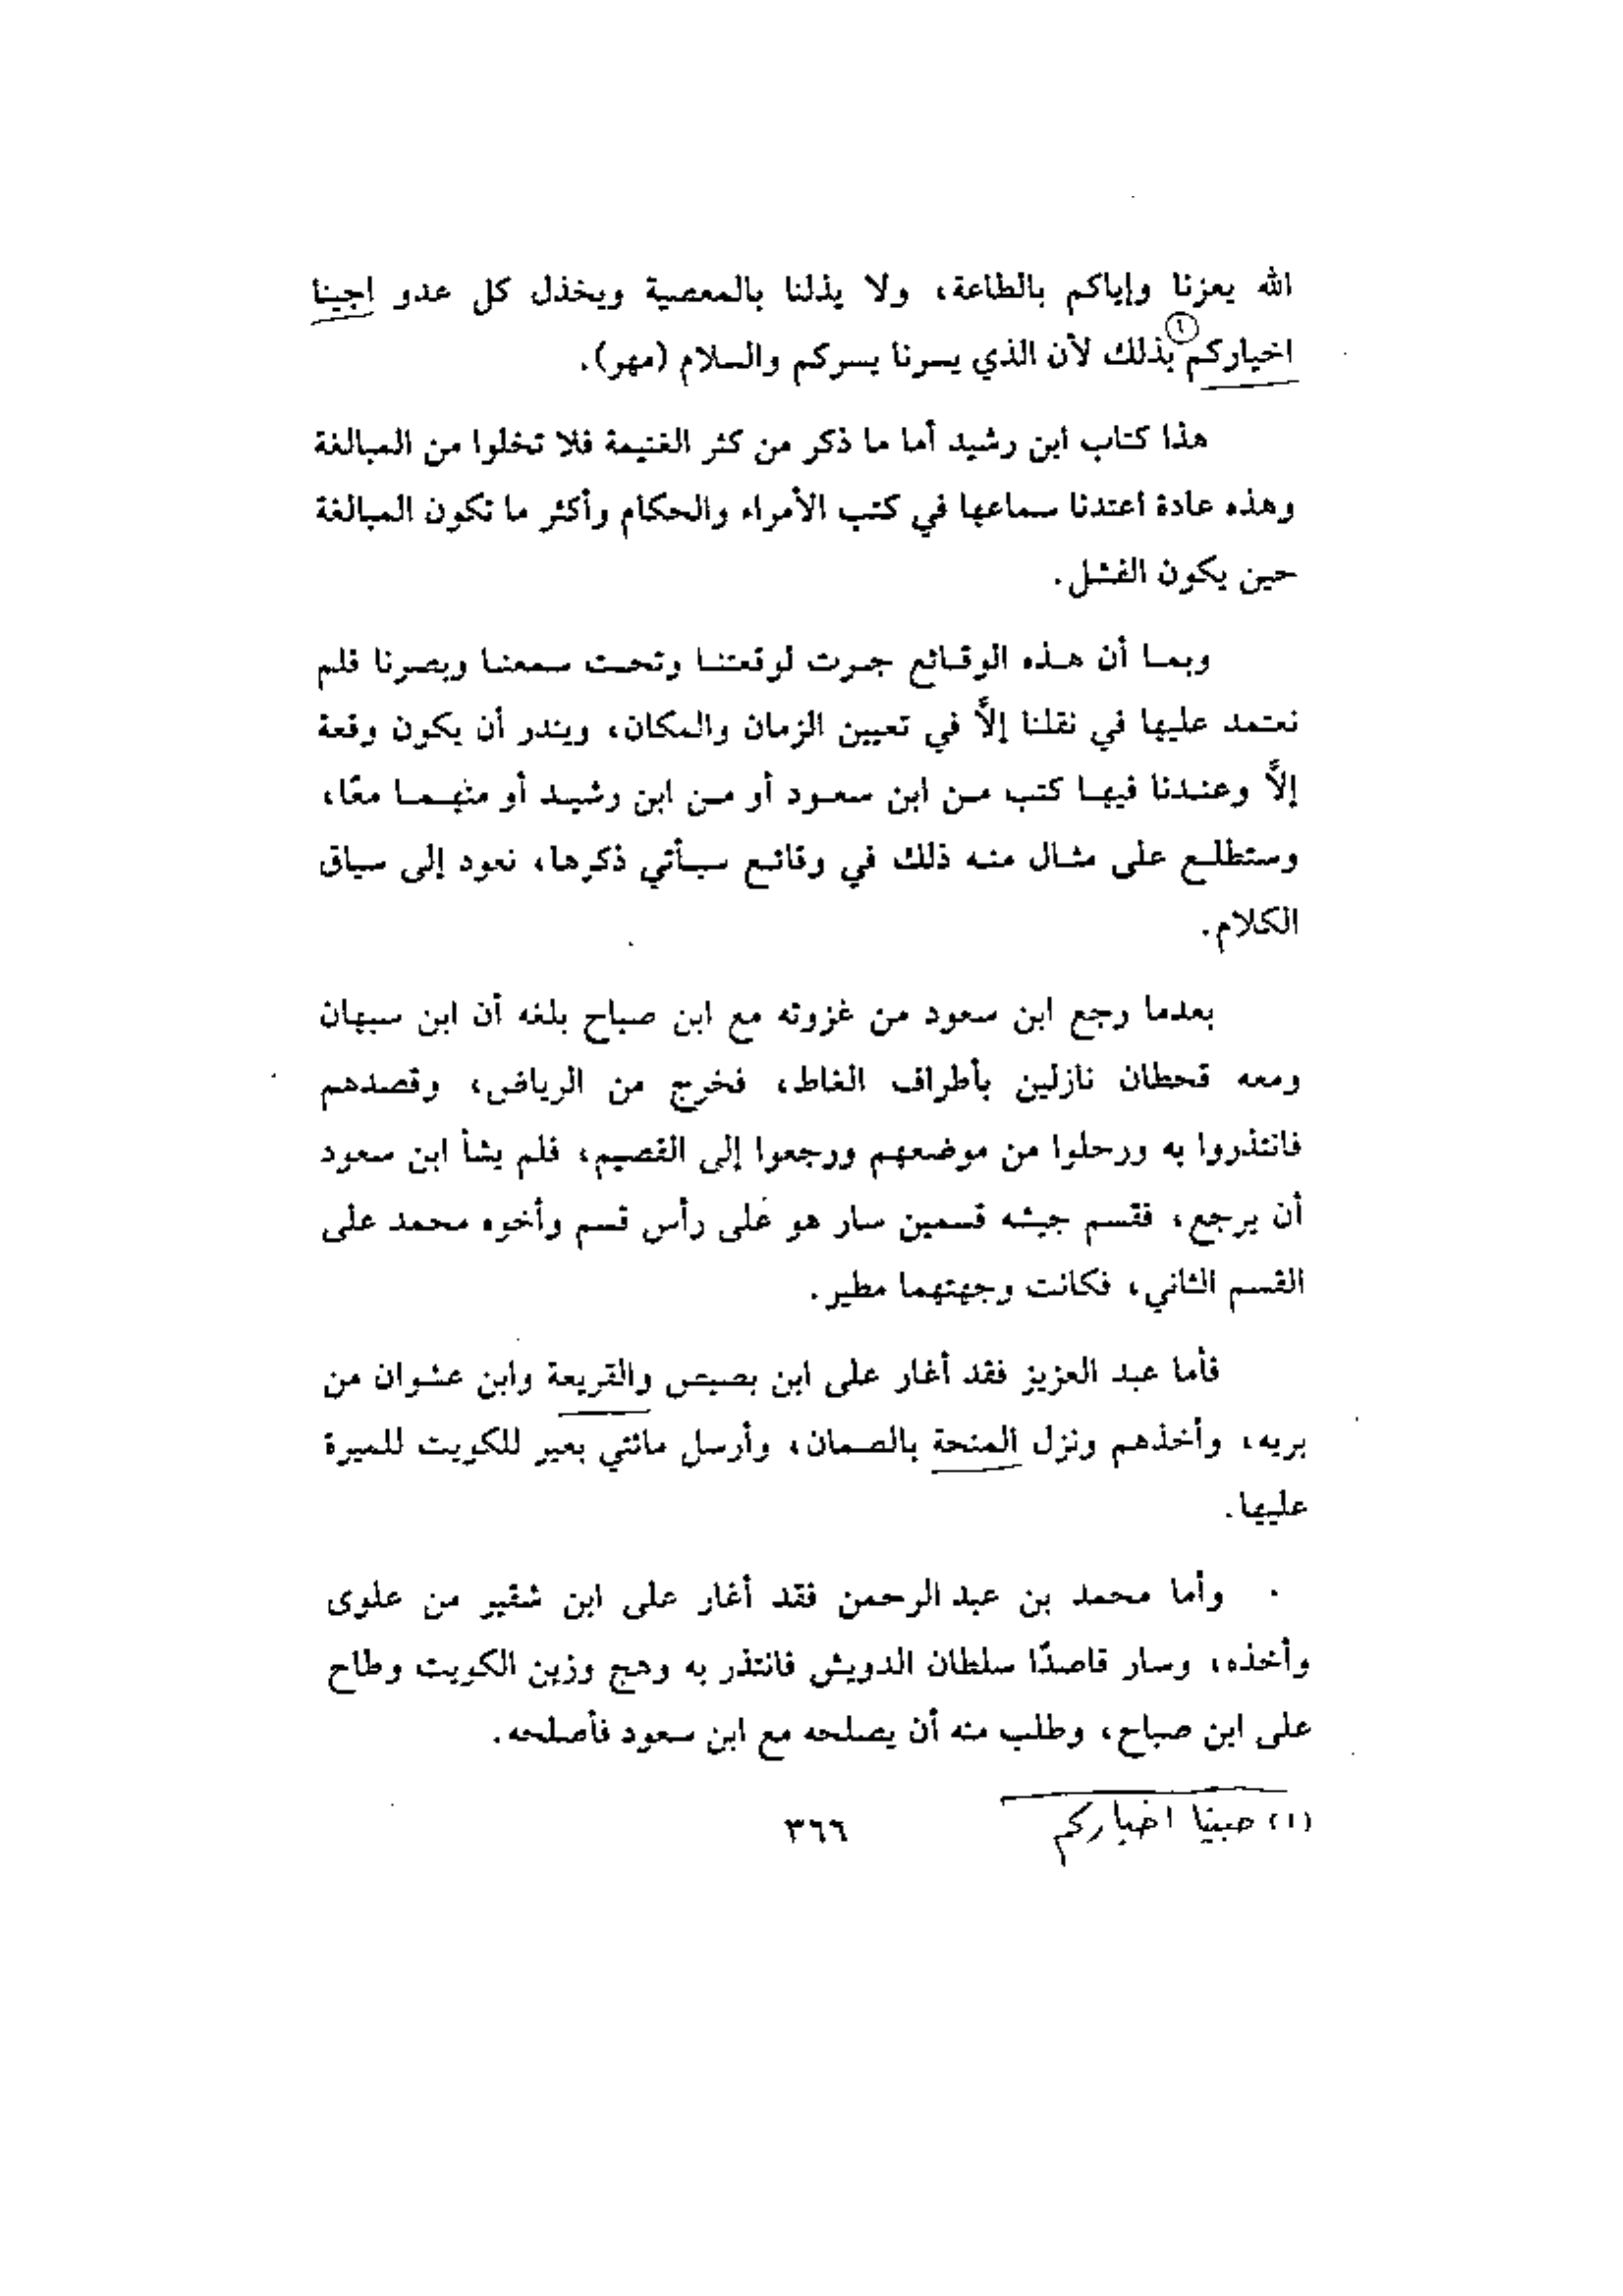 الله يعزنا وإياكم بالطاعة، ولا يذلنا بالمعصية ويخذل كل عدو اجينا
اخياركم (١) بذلك لأن الذي يسرنا يسركم والسلام (مهر).
هذا كتاب ابن رشيد أما ما ذكر من كثر الغنيمة فلا تخلوا من المبالغة
وهذه عادة اعتدنا سماعها في كتب الأمراء والحكام وأكثر ما تكون المبالغة
حين يكون الفشل.
وبما أن هذه الوقائع جرت لوقعتنا وتحت سمعنا وبصرنا فلم
نعتمد عليها في نقلنا إلاَّ في تعيين الزمان والمكان، ويندر أن يكون وقعة
إلاَّ وعندنا فيها كتب من ابن سعود أو من ابن رشيد أو منهما معًا،
وستطلع على مثال منه ذلك في وقائع سيأتي ذكرها، نعود إلى سياق
الكلام.
بعدما رجع ابن سعود من غزوته مع ابن صباح بلغه أن ابن سبهان
ومعه قحطان نازلين بأطراف الغاط، فخرج من الرياض، وقصدهم
فانتذروا به ورحلوا من موضعهم ورجعوا إلى القصيم، فلم يشأ ابن سعود
أن يرجع، فقسم جيشه قسمين سار هو على رأس قسم وأخوه محمد على
القسم الثاني، فكانت وجهتهما مطير.
فأما عبد العزيز فقد أغار على ابن بصيص والقريعة وابن عشوان من
بريه، وأخذهم ونزل المنحة بالصمان، وأرسل مائتي بعير للكويت للميرة
عليها.
وأما محمد بن عبد الرحمن فقد أغار على ابن شقير من علوى
وأخذه، وسار قاصدًا سلطان الدويش فانتذر به وهج وزبن الكويت وطاح
على ابن صباح، وطلب منه أن يصلحه مع ابن سعود فأصلحه.
(١) حبينا اخباركم
٣٦٦